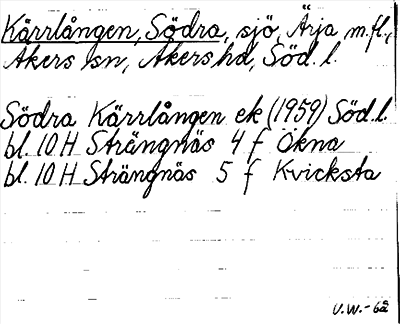 Kärrlången, Södra, sjö, Ärja m.fl.,
Åkers sn, Åkers hd, Söd. l.
Södra Kärrlången ek (1959) Söd. l.
bl. 10 H Strängnäs 4 f Ökna
bl. 10 H Strängnäs 5 f Kvicksta
U.W.-62